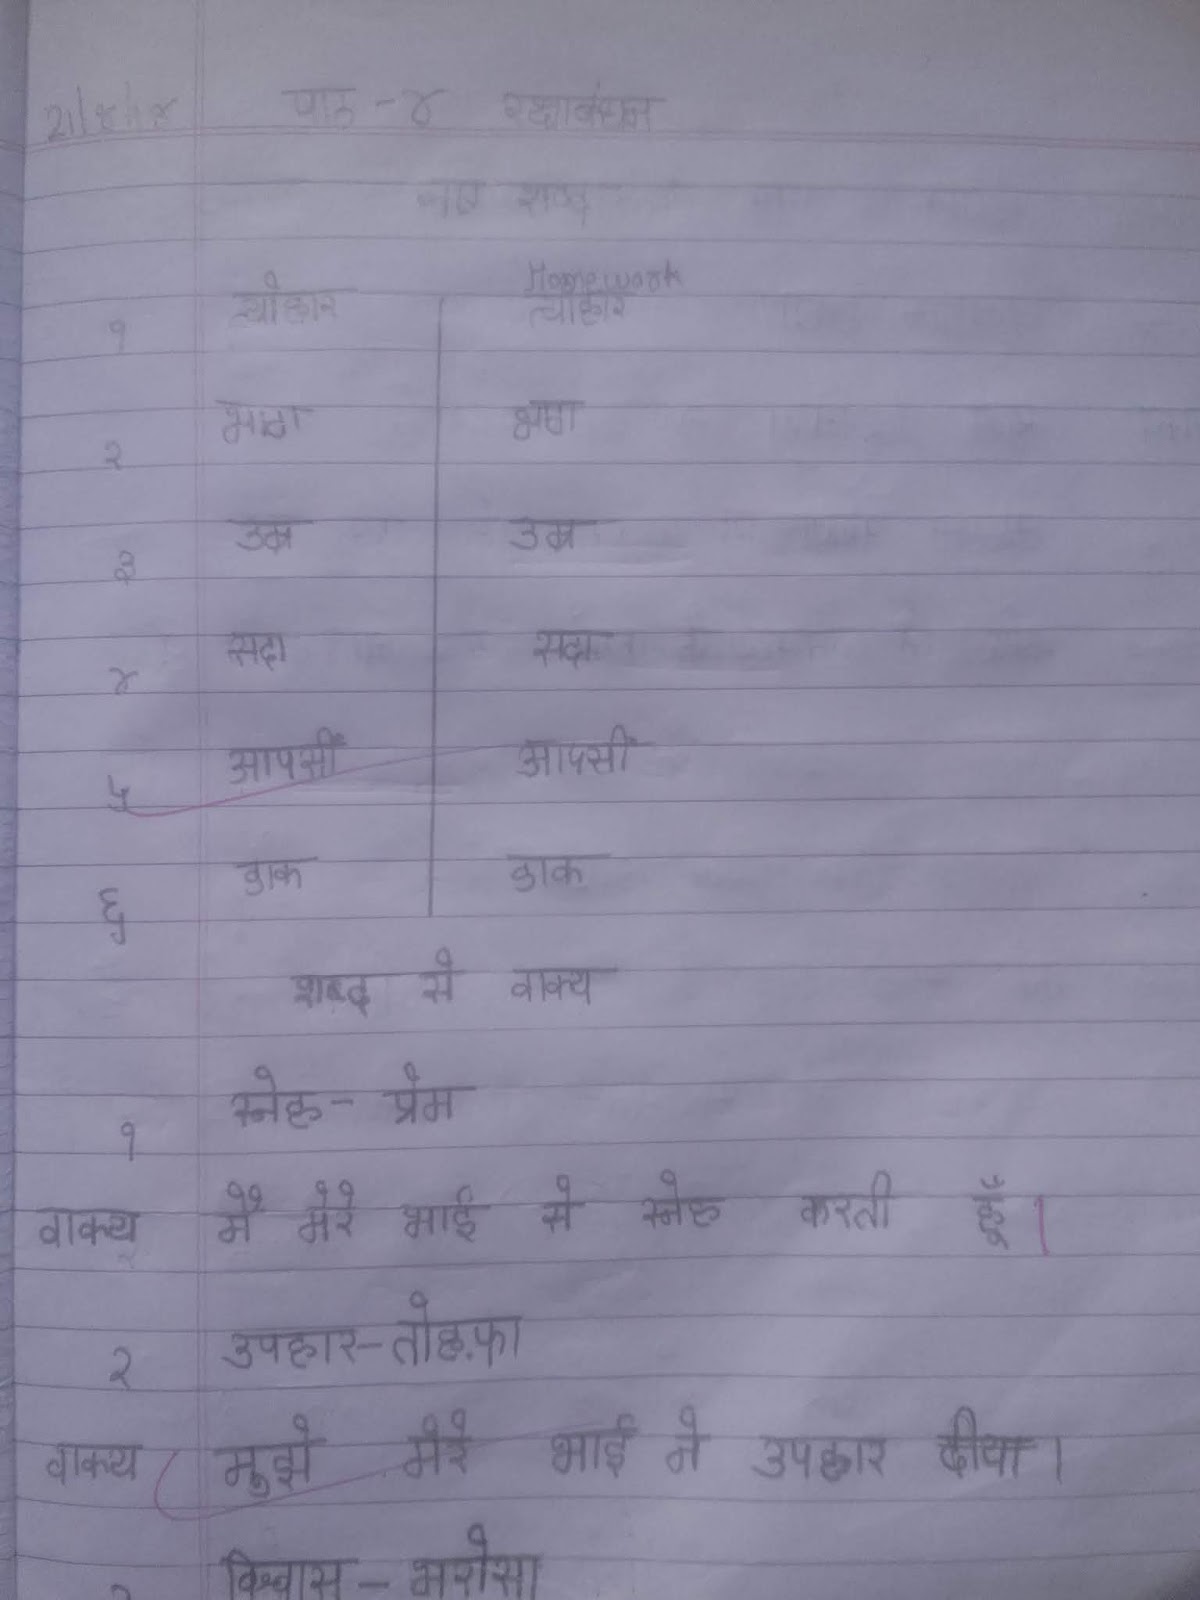 पाठ - ४ रक्षाबंधन
नए शब्द
Homework
१ त्योहार त्योहार
२
३ उम्र उम्र
४ सदा सदा
५ आपसी आपसी
६ डाक डाक
शब्द से वाक्य
१ स्नेह - प्रेम
वाक्य में मेरे भाई से स्नेह करती हूँ।
२ उपहार - तोहफ़ा
वाक्य मुझे मेरे भाई ने उपहार दीया।
विश्वास - भरोसा